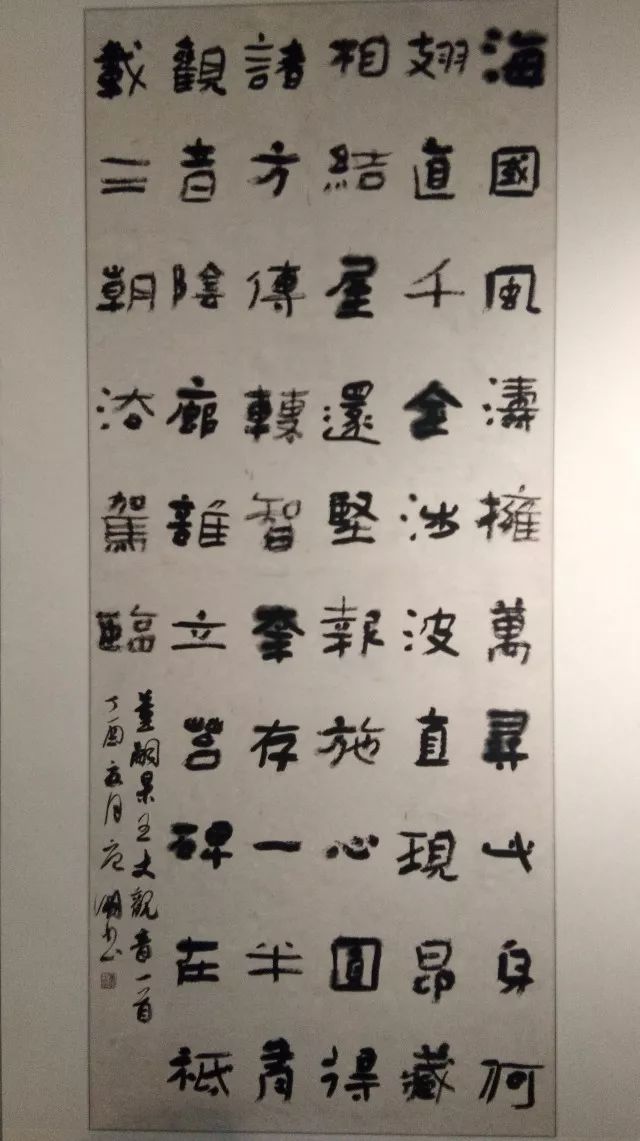 海國風濤擁萬尋此身何
翅直千金涉波直現昂藏
相結屋還堅報施心圓得
諸方傳轉智拳存一半肅
觀音陰廊誰立莒碑在祗
載三朝洊駕臨
董嗣杲王丈觀音一首
丁酉 月 書